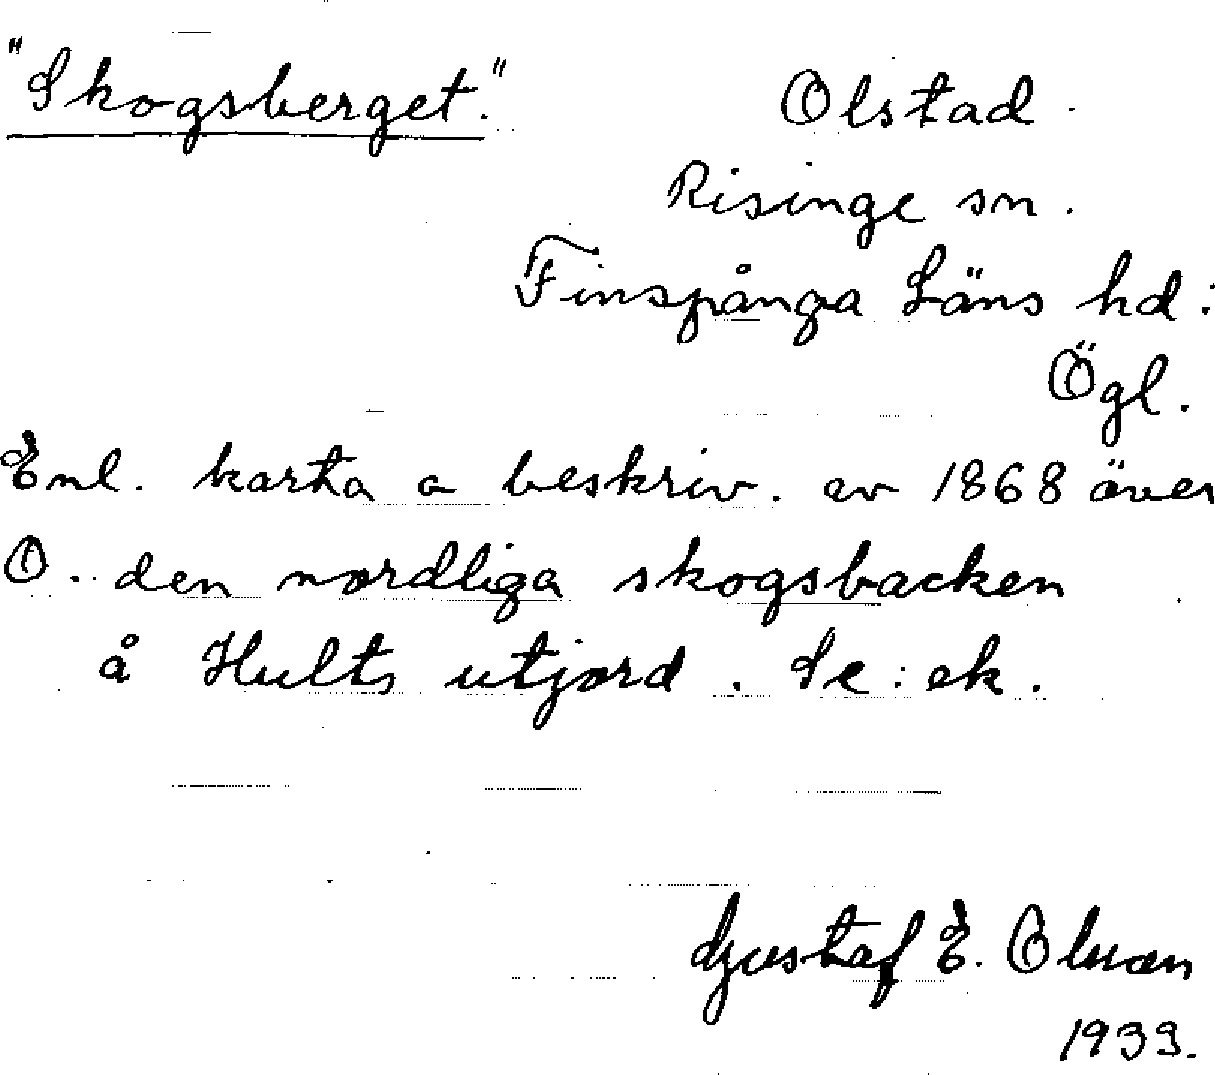 "Skogsberget."
Olstad
Risinge sn.
Finspånga Läns hd:
Ögl.
Enl. karta o beskriv. av 1868 över
O. den nordliga skogsbacken
å Hults utjord. Se: ek.
Gustaf E. Olsson
1933.